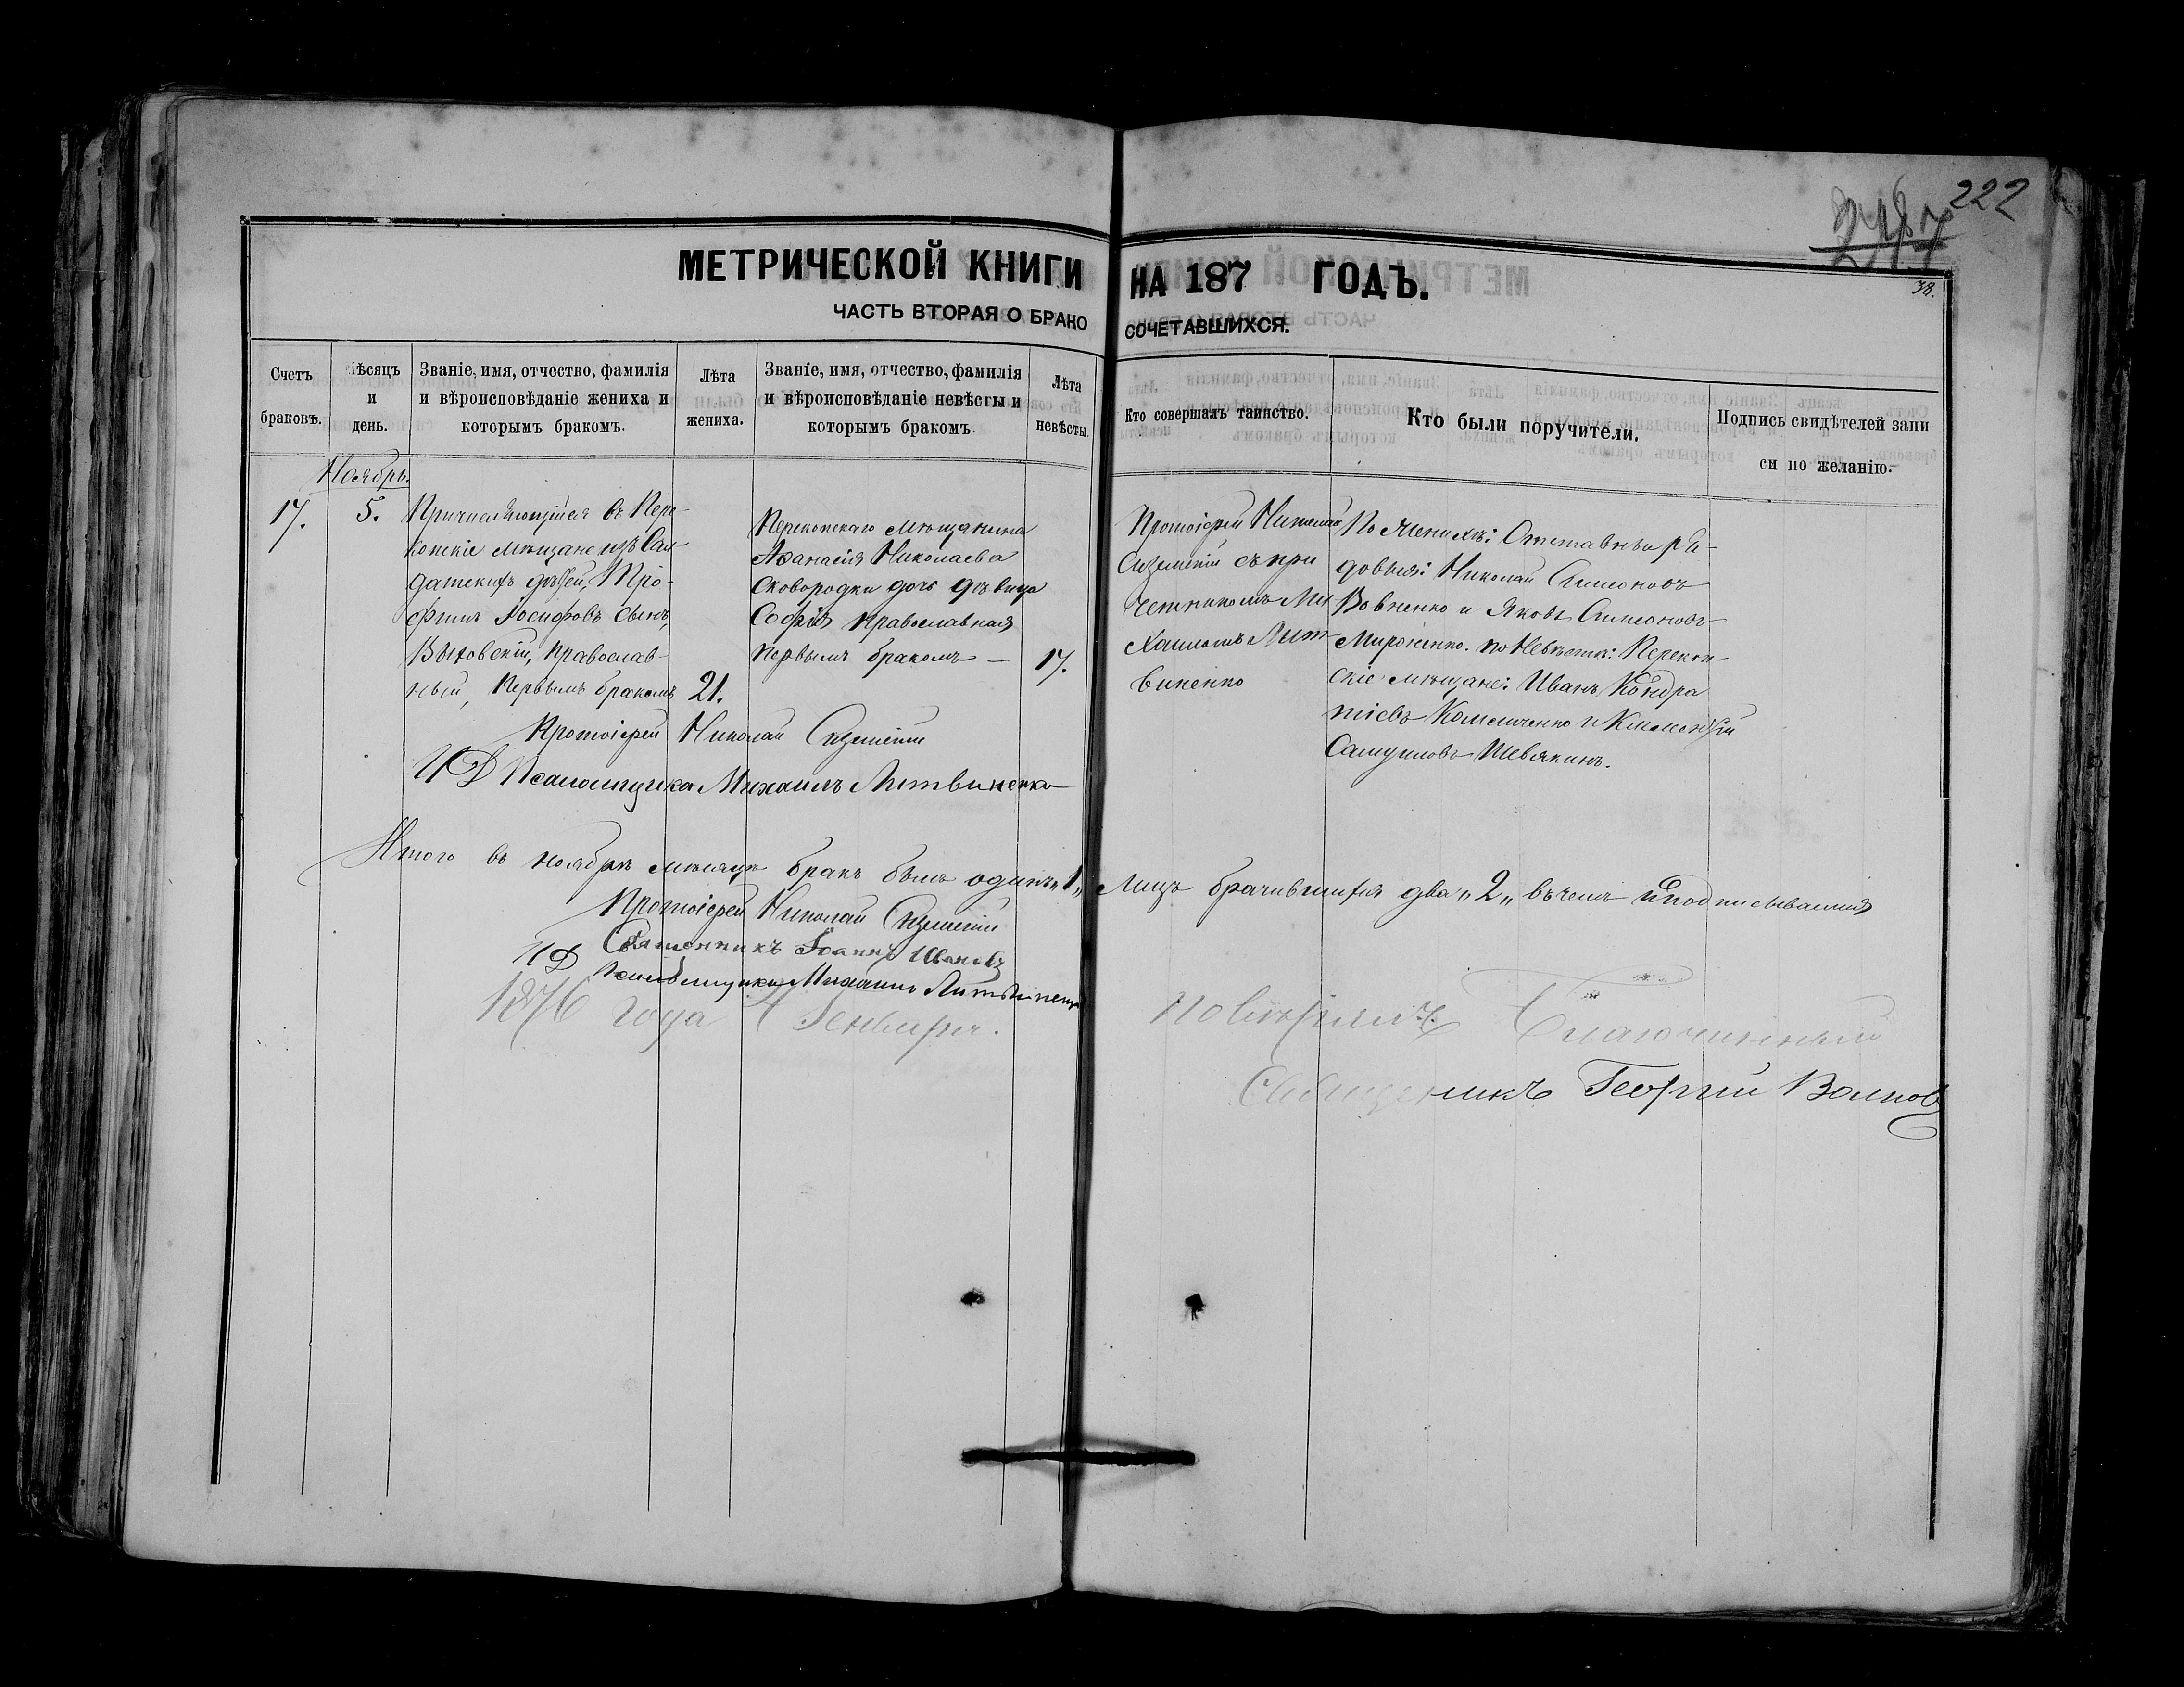 222
38.
МЕТРИЧЕСКОЙ КНИГИ НА 187 ГОДЪ.
ЧАСТЬ ВТОРАЯ О БРАКО СОЧЕТАВШИХСЯ.
Счетъ браковъ.
Мѣсяцъ и день.
Званіе, имя, отчество, фамилія
и вѣроисповѣданіе жениха и
которымъ бракомъ.
Лѣта жениха.
Званіе, имя, отчество, фамилія
и вѣроисповѣданіе невѣсты и
которымъ бракомъ
Лѣта невѣсты.
Кто совершалъ таинство.
Кто были поручители.
Подпись свидѣтелей запи
си по желанію.
Ноябрь.
17.
5.
Причисляющійся въ Пере-
копскіе мѣщане изъ Сол-
датскихъ дѣтей, Тро-
фимъ Іосифовъ сынъ,
Быховскій, православ-
ный, первымъ бракомъ
21.
Перекопскаго мѣщанина
Аѳанасія Николаева
Сковородки дочь дѣвица
Софія православная
первымъ бракомъ —
17.
Протоіерей Николай
съ при
четникомъ Ми
хаиломъ Лит
виненко
По Женихѣ: Отставные ря-
довые: Николай Симеоновъ
Вовненко и Яковъ Симеоновъ
Мироненко. по Невѣстѣ: Перекоп-
скіе мѣщане: Иванъ Кондра
тіевъ и Климентій
Самуиловъ Шевякинъ.
Протоіерей Николай
ИД Псаломщика Михаилъ Литвиненко
Итого въ ноябрѣ мѣсяцѣ бракъ былъ одинъ „1„ Лицъ брачившихся два „2„ въ чемъ и подписываемся
Протоіерей Николай
Священникъ Іоаннъ Ивановъ
ИД Псаломщика Михаилъ Литвиненко
1876 года Генваря.
Повѣрялъ Благочинный
Священникъ Георгій Волковъ